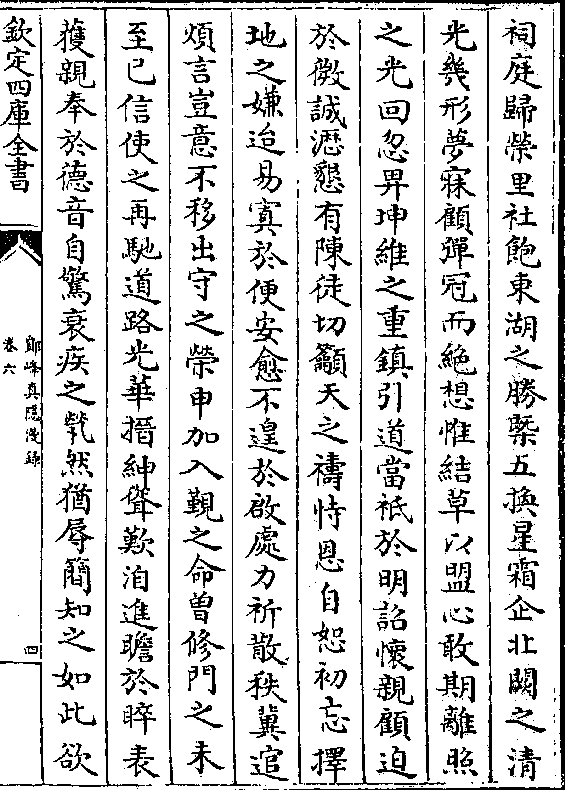 祠庭歸榮里社飽東湖之勝槩五換星霜企北闕之清
光幾形夢寐顧彈冠而絶想惟結草以盟心敢期離照
之光回忽畀坤維之重鎮引道當祗於明詔懷親顧迫
於微誠瀝懇有陳徒切籲天之禱恃恩自恕初忘擇
地之嫌迨易寘於便安愈不遑於啟處力祈散秩冀逭
煩言豈意不移出守之榮申加入覲之命曽修門之未
至已信使之再馳道路光華搢紳聳歎洎進瞻於睟表
獲親奉於德音自驚衰疾之煢然猶辱簡知之如此欲
欽定四庫全書
鄮峰真隠漫録
卷六
四